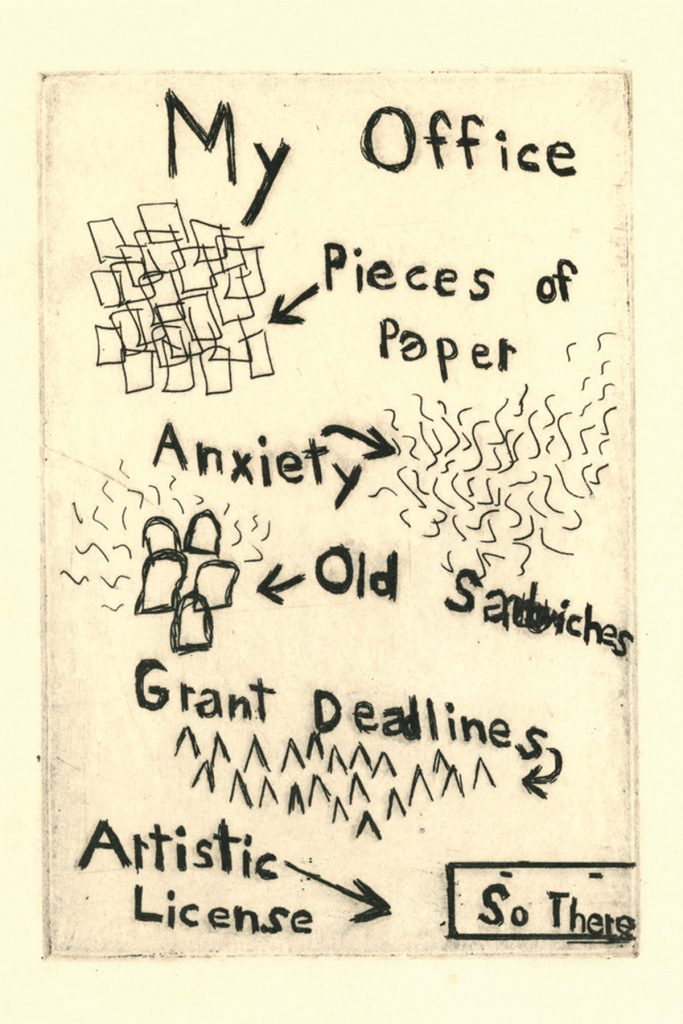 My Office
Pieces of
Paper
Anxiety
Old Sandwiches
Grant Deadlines
Artistic
License
So There